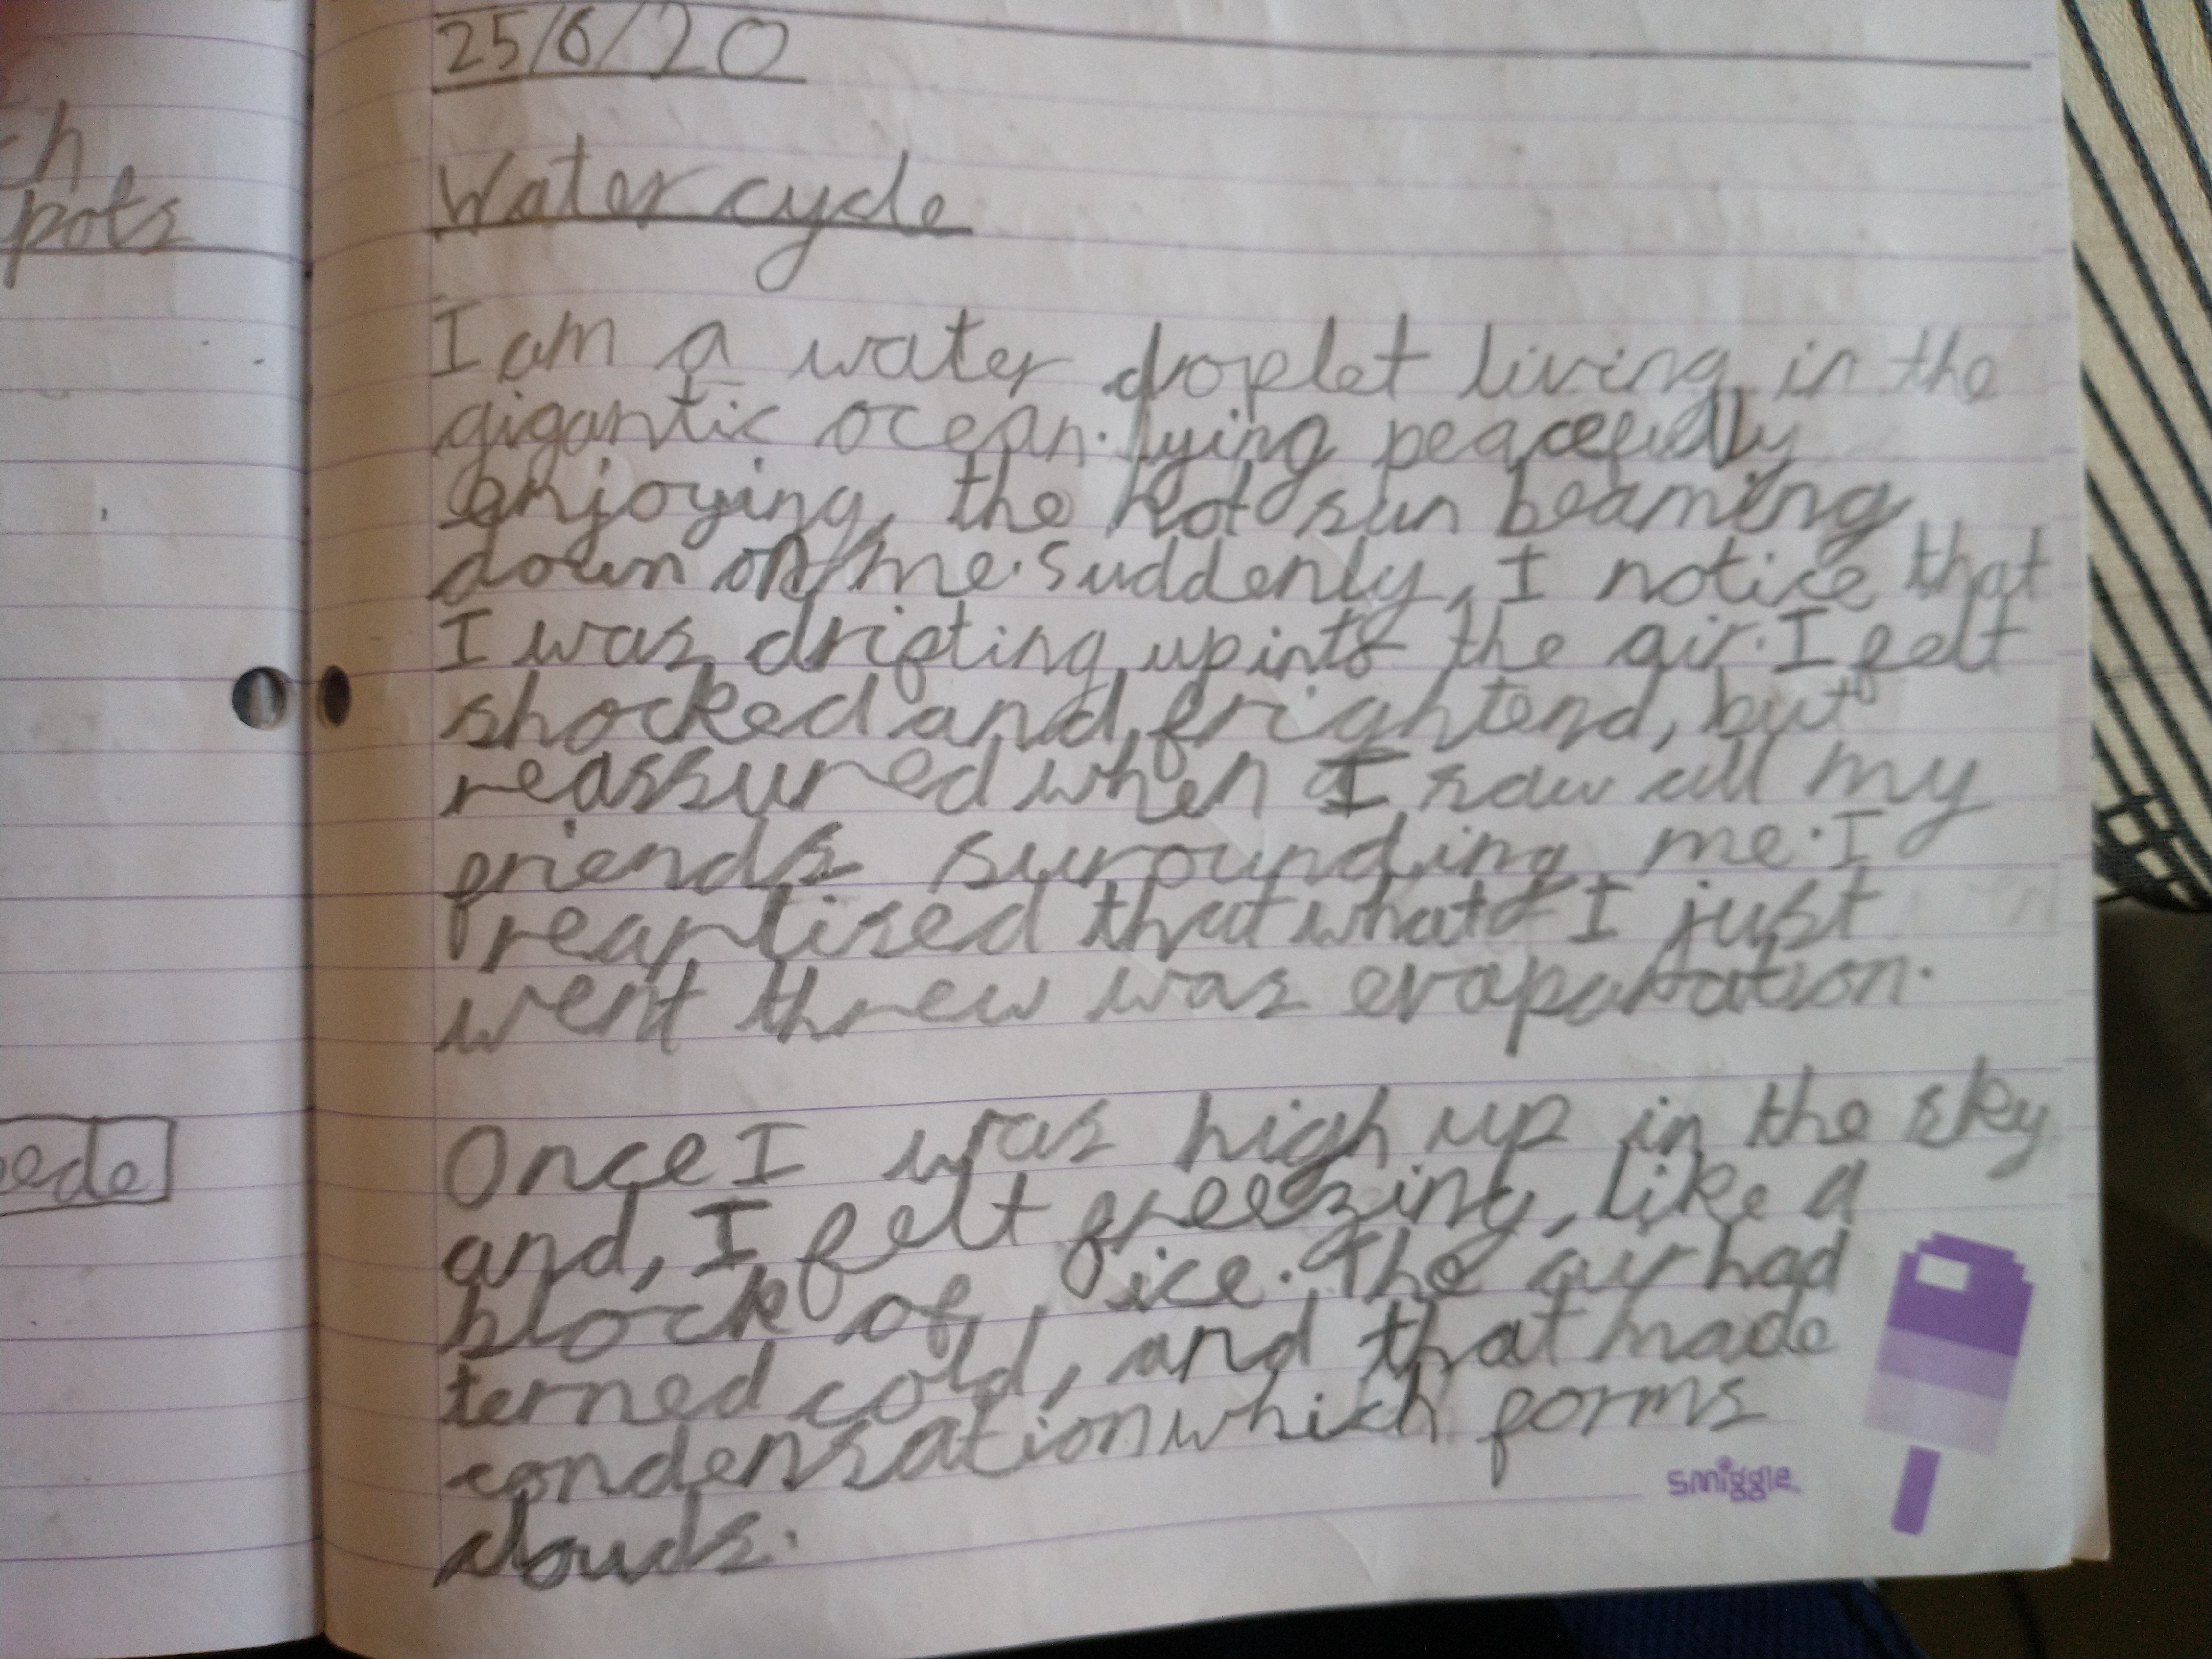 25/6/20
Water cycle
I am a water droplet living in the
gigantic ocean. lying peacefully
enjoying, the hot sun beaming
down on me. Suddenly, I notice that
I was drifting up into the air. I felt
shocked and frightend, but
reassured when I saw all my
friends surounding me. I
rearlised that what I just
went threw was evaparation.
Once I was high up in the sky
and, I felt freezing, like a
block of ice. The air had
terned cold, and that made
condensation which forms
clouds.
smiggle
pots